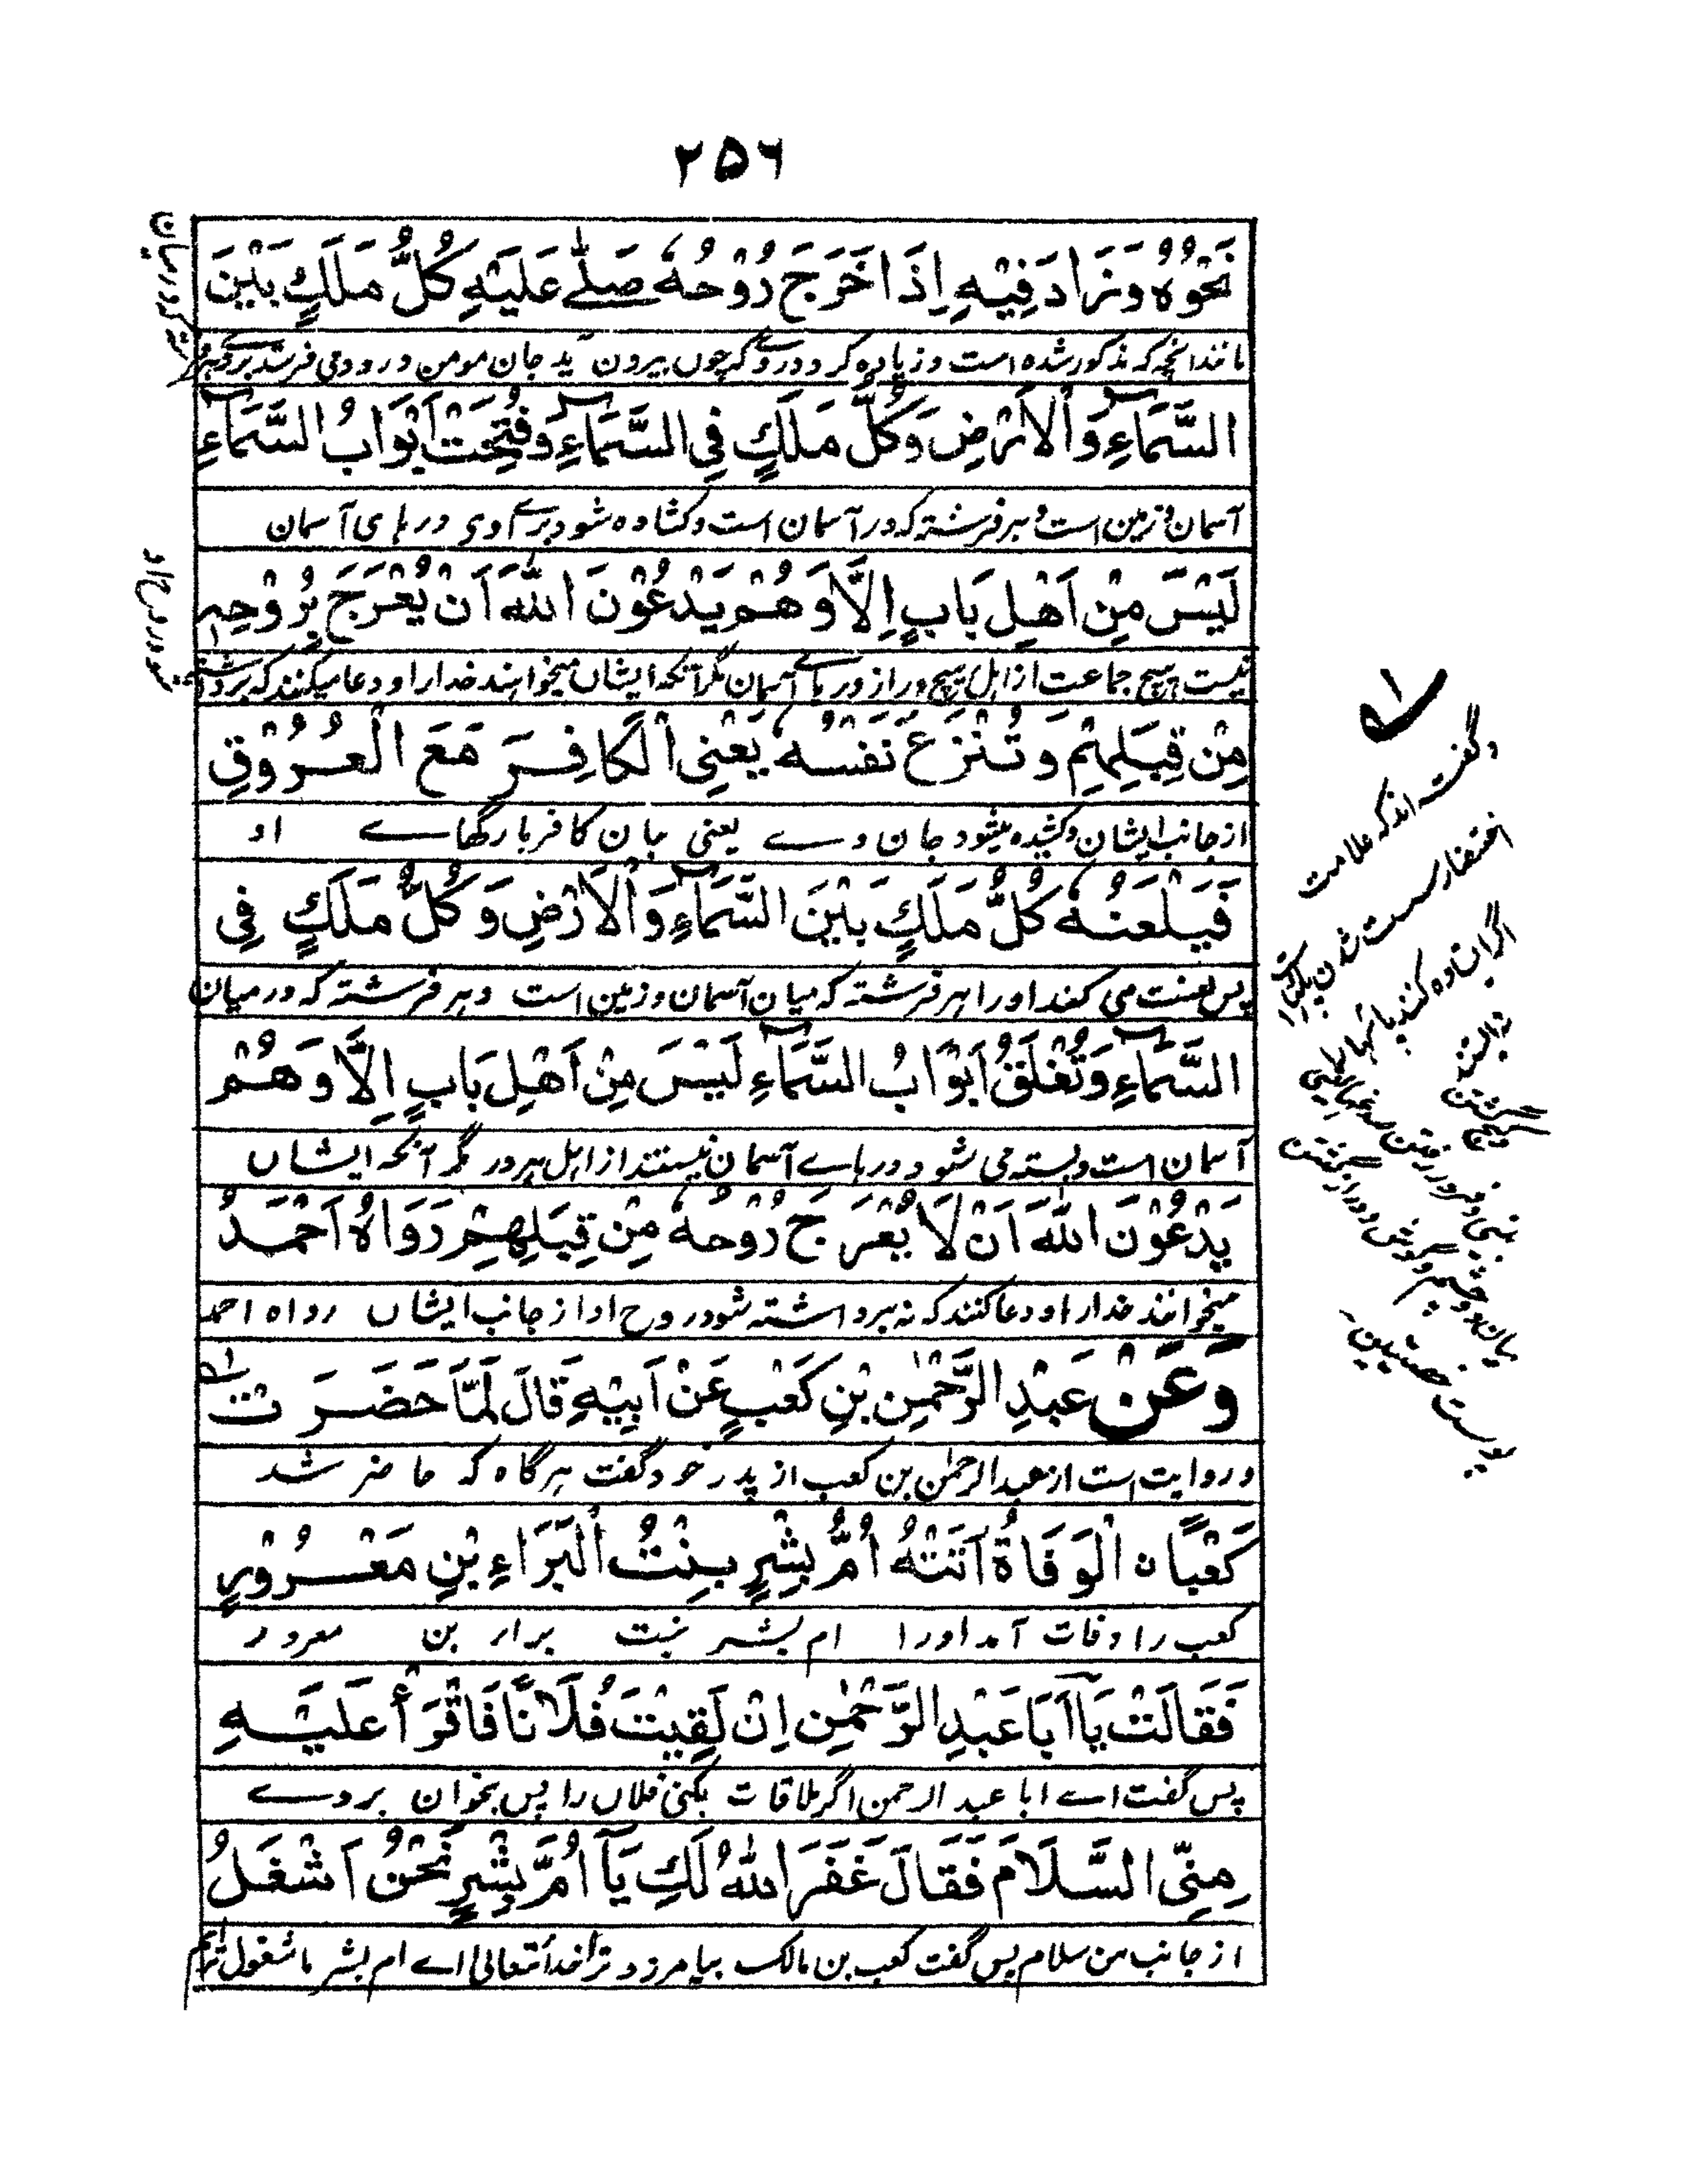 ۲۵۶
نَحْوُهُ وَزَادَ فِيْهِ اِذَا خَرَجَ رُوْحُهٗ صَلّٰى عَلَيْهِ كُلُّ مَلَكٍ بَيْنَ
مانند آنچه که مذکور شده است و زیاده کرد در وے که چوں بیرون ید جان مومن درود می فرستد بروے هر
فرشته که در میان
السَّمَآءِ وَالْاَرْضِ وَكُلُّ مَلَكٍ فِي السَّمَآءِ وَفُتِحَتْ اَبْوَابُ السَّمَآءِ
آسمان و زمین است و هر فرشته که در آسمان است و کشاده شود براے اوی در های آسمان
لَيْسَ مِنْ اَهْلِ بَابٍ اِلَّا وَهُمْ يَدْعُوْنَ اللّٰهَ اَنْ يُعْرَجَ بِرُوْحِهٖ
نیست هیچ جماعت از اهل هیچ در از درهاے آسمان مگر آنکه ایشان میخوانند خدا را و دعا میکنند که برداشته
شود روح او
مِنْ قِبَلِهِمْ وَتُنْزَعُ نَفْسُهٗ يَعْنِى الْكَافِرَ مَعَ الْعُرُوْقِ
از جانب ایشان و کشیده میشود جان وے یعنی جان کافر با رگهاے او
فَيَلْعَنُهٗ كُلُّ مَلَكٍ بَيْنَ السَّمَآءِ وَالْاَرْضِ وَكُلُّ مَلَكٍ فِي
پس لعنت می کند او را هر فرشته که میان آسمان و زمین است و هر فرشته که در میان
السَّمَآءِ وَتُغْلَقُ اَبْوَابُ السَّمَآءِ لَيْسَ مِنْ اَهْلِ بَابٍ اِلَّا وَهُمْ
آسمان است و بسته می شود درهاے آسمان نیستند از اهل هر در مگر آنکه ایشاں
يَدْعُوْنَ اللّٰهَ اَنْ لَا يُعْرَجَ رُوْحُهٗ مِنْ قِبَلِهِمْ رَوَاهُ اَحْمَدُ
میخوانند خدا را و دعا کنند که نه برداشته شود روح او از جانب ایشاں رواه احمد
وَعَنْ عَبْدِ الرَّحْمٰنِ بْنِ كَعْبٍ عَنْ اَبِيْهِ قَالَ لَمَّا حَضَرَتْ
و روایت است از عبد الرحمٰن بن کعب از پدر خود گفت هرگاه که حاضر شد
كَعْبًا ن الْوَفَاةُ اَتَتْهُ اُمُّ بِشْرٍ بِنْتُ الْبَرَاءِ بْنِ مَعْرُوْرٍ
کعب را وفات آمد او را ام بشر بنت براء بن معرور
فَقَالَتْ يَآ اَبَا عَبْدِ الرَّحْمٰنِ اِنْ لَقِيْتَ فُلَانًا فَاقْرَأْ عَلَيْهِ
پس گفت اے ابا عبد الرحمن اگر ملاقات بکنی فلاں را پس بخوان بروے
مِنِّى السَّلَامَ فَقَالَ غَفَرَ اللّٰهُ لَكِ يَآ اُمَّ بِشْرٍ نَحْنُ اَشْغَلُ
از جانب من سلام پس گفت کعب بن مالک بیامرزد ترا خدا تعالی اے ام بشر ما مشغول تر ایم
و گفته اند که علامت
احتضار سست شدن